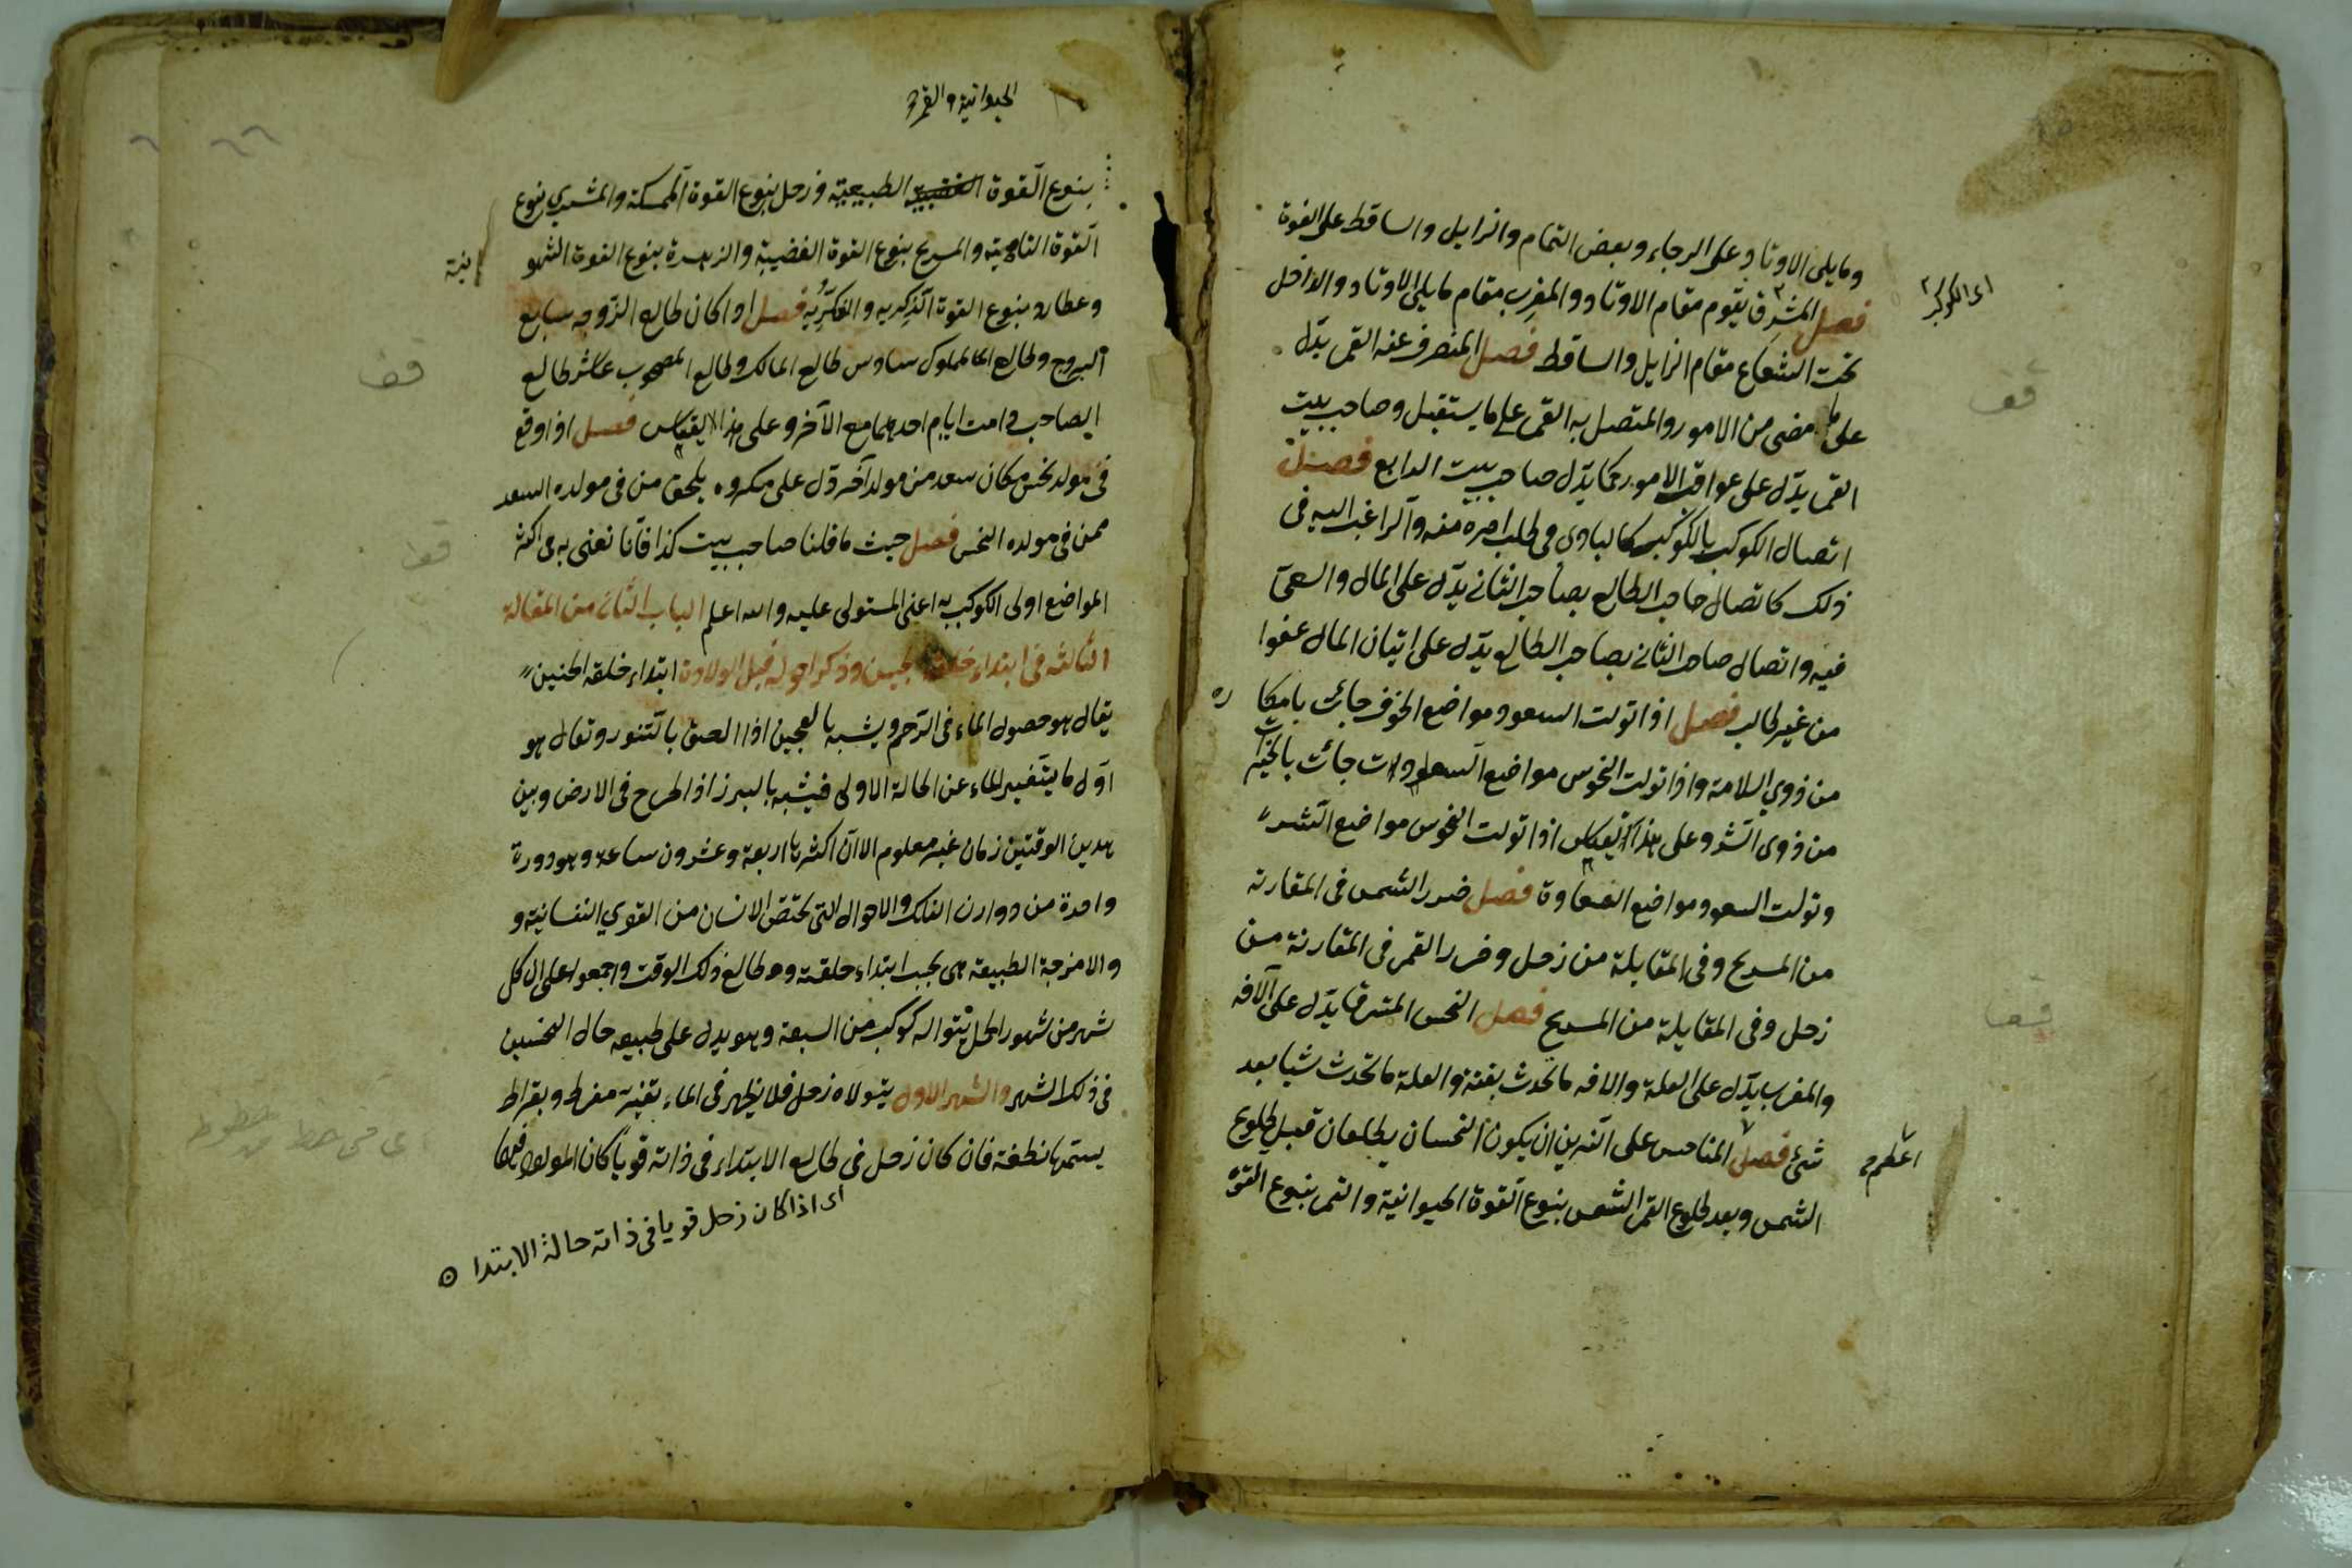 وما يلى الاوتاد على الرجاء وبعض التمام والزايل والساقط على الفوة
اى الكوكب
فصل المشرق يقوم مقام الاوتاد والمغرب مقام ما يلى الاوتاد والداخل
تحت الشعاع مقام الزايل والساقط فصل المنصرف عنه القمر يدّل
على ما مضى من الامور والمتصل به القمر على ما يستقبل وصاحب بيت
القمر يدّل على عواقب الامور كما يدّل صاحب بيت الرابع فصل
اتصال الكوكب بالكوكب كالبادى فى طلب امره منه والراغب اليه فى
ذلك كاتصال صاحب الطالع بصاحب الثانى يدّل على المال والسعى
فيه واتصال صاحب الثانى بصاحب الطالع يدّل على اتيان المال عفوا
من غير طالب فصل اذا تولت السعود مواضع الخوف جائت بامكا ره
من ذوى السلامة واذا تولت النحوس مواضع السعادات جائت بالخيرات
من ذوى الشر وعلى هذا يقاس اذا تولت النحوس مواضع الشر
وتولت السعود مواضع السعادة فصل ضرر الشمس فى المقارنة
من المريخ وفى المقابلة من زحل وضرر القمر فى المقارنة من
زحل وفى المقابلة من المريخ فصل النحس المشرق يدّل على الآفه
والمغرب يدّل على العلة والافه ما تحدث بغتة والعلة ما تحدث شيا بعد
شئ فصل المناحس على النيرين ان يكون النحسان يطلعان قبيل طلوع
اعظم
الشمس وبعد طلوع القمر الشمس بنوع القوة الحيوانية والقمر بنوع القوة
الحيوانية والقمر
بنوع القوة الطبيعية وزحل بنوع القوة الممسكة والمشترى بنوع
القوة النامية والمريخ بنوع القوة الغضبية والزهرة بنوع القوة الشهو
انية
وعطارد بنوع القوة الذكريه والفكريه فصل اذا كان طالع الزوجه سابع
الزوج وطالع المملوك سادس طالع المالك وطالع المصحوب عاشر طالع
الصاحب دامت ايام احدهما مع الآخر وعلى هذا يقاس فصل اذا وقع
فى مولد نحس مكان سعد من مولد آخر دّل على مكروه يلحق من فى مولده السعد
ممن فى مولده النحس فصل حيث ما قلنا صاحب بيت كذا فانا نعنى به فى اكثر
المواضع اولى الكوكب به اعنى المستولى عليه والله اعلم الباب الثانى من المقالة
الثالثه فى ابتداء خلقة الجنين وذكر احواله قبل الولادة ابتداء خلقه الجنين
يقال هو حصول الماء فى الرحم ويشبه بالعجين اذا الصق بالتنور ويقال هو
اول ما يتغير الماء عن الحالة الاولى فيشبه بالبرز اذا طرح فى الارض وبين
هدين الوقتين زمان غير معلوم الا ان اكثرها اربعة وعشرون ساعة وهو دورة
واحدة من دوارن الفلك والاحوال التى تختص الانسان من القوى النفسانية و
والامزجة الطبيعة هى بحسب ابتداء خلقته وهو طالع ذلك الوقت واجمعوا على ان كل
شهر من شهور الحمل يتولاه كوكب من السبعة وهو يدل على طبيعه حال الجنين
فى ذلك الشهر والشهر الاول يتولاه زحل فلا يظهر فى الماء تغير مفرط وبقراط
يستمها نطفة فان كان زحل فى طالع الابتداء فى ذاته قويا كان المولود
اى اذا كان زحل قويا فى ذاته حالة الابتدا